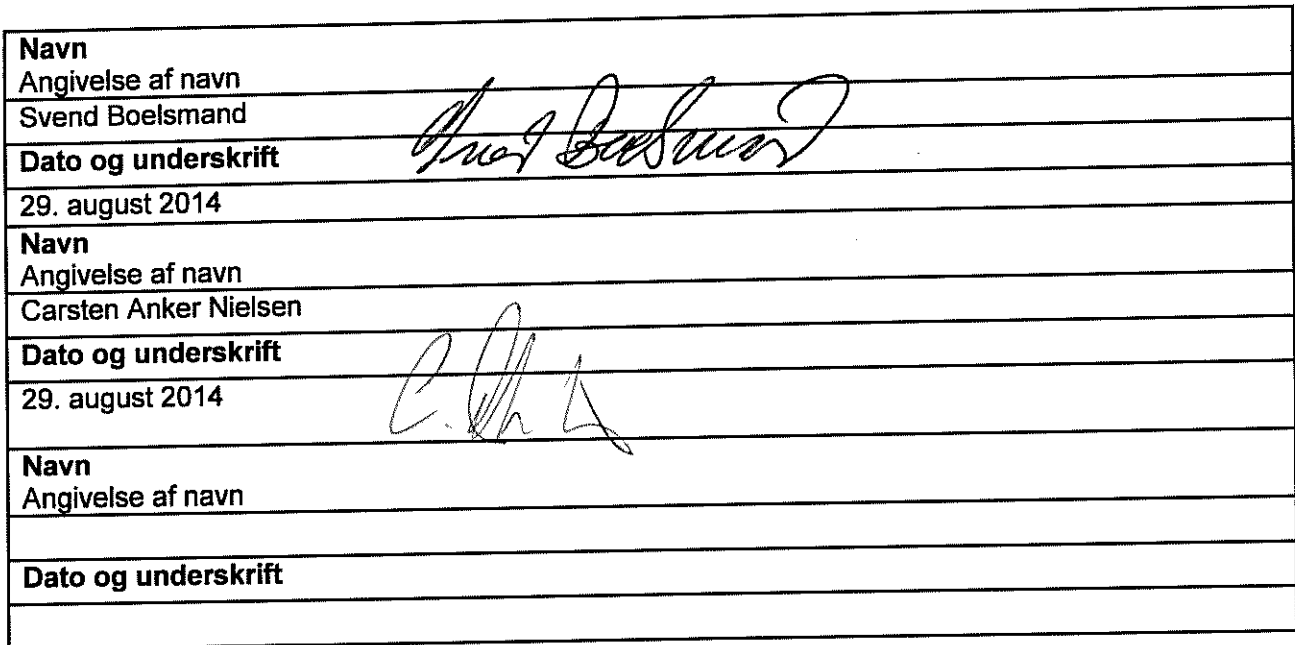 Navn
Angivelse af navn
Svend Boelsmand
Dato og underskrift
29. august 2014
Navn
Angivelse af navn
Carsten Anker Nielsen
Dato og underskrift
29. august 2014
Navn
Angivelse af navn
Dato og underskrift